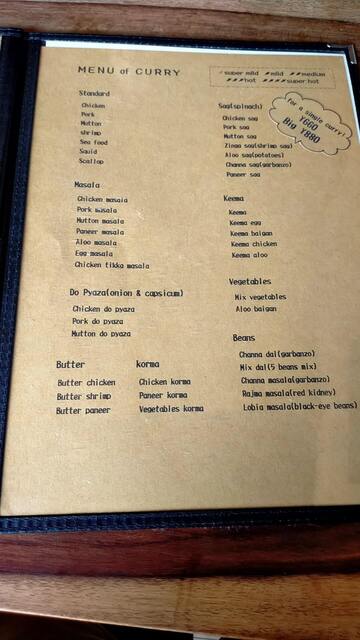 MENU of CURRY
super mild mild medium
hot super hot
for a single curry!
¥660
Big ¥880
Standard
Chicken
Pork
Mutton
shrimp
Sea food
Squid
Scallop
Masala
Chicken masala
Pork masala
Mutton masala
Paneer masala
Aloo masala
Egg masala
Chicken tikka masala
Do Pyaza(onion & capsicum)
Chicken do pyaza
Pork do pyaza
Mutton do pyaza
Butter
Butter chicken
Butter shrimp
Butter paneer
korma
Chicken korma
Paneer korma
Vegetables korma
Sag(spinach)
Chicken sag
Pork sag
Mutton sag
Zinga sag(shrimp sag)
Aloo sag(potatoes)
Channa sag(garbanzo)
Paneer sag
Keema
Keema
Keema egg
Keema baigan
Keema chicken
Keema aloo
Vegetables
Mix vegetables
Aloo baigan
Beans
Channa dal(garbanzo)
Mix dal(5 beans mix)
Channa masala(garbanzo)
Rajma masala(red kidney)
Lobia masala(black-eye beans)